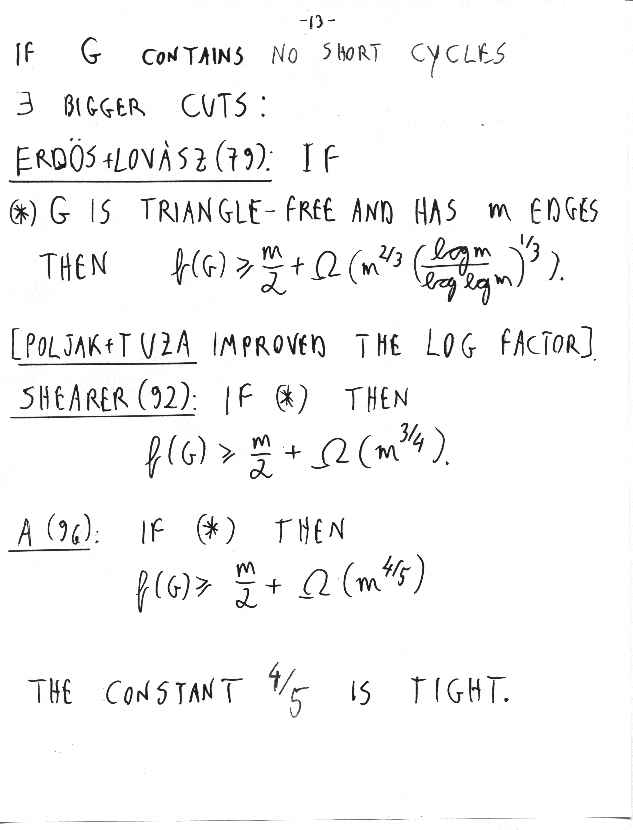 -13-
IF G CONTAINS NO SHORT CYCLES
∃ BIGGER CUTS:
ERDÖS+LOVÀSZ(79): IF
(*) G IS TRIANGLE-FREE AND HAS m EDGES
THEN f(G) ≥ m/2 + Ω(m^{2/3} (log m / log log m)^{1/3}).
[POLJAK+TUZA IMPROVED THE LOG FACTOR].
SHEARER(92): IF (*) THEN
f(G) ≥ m/2 + Ω(m^{3/4}).
A(96): IF (*) THEN
f(G) ≥ m/2 + Ω(m^{4/5})
THE CONSTANT 4/5 IS TIGHT.